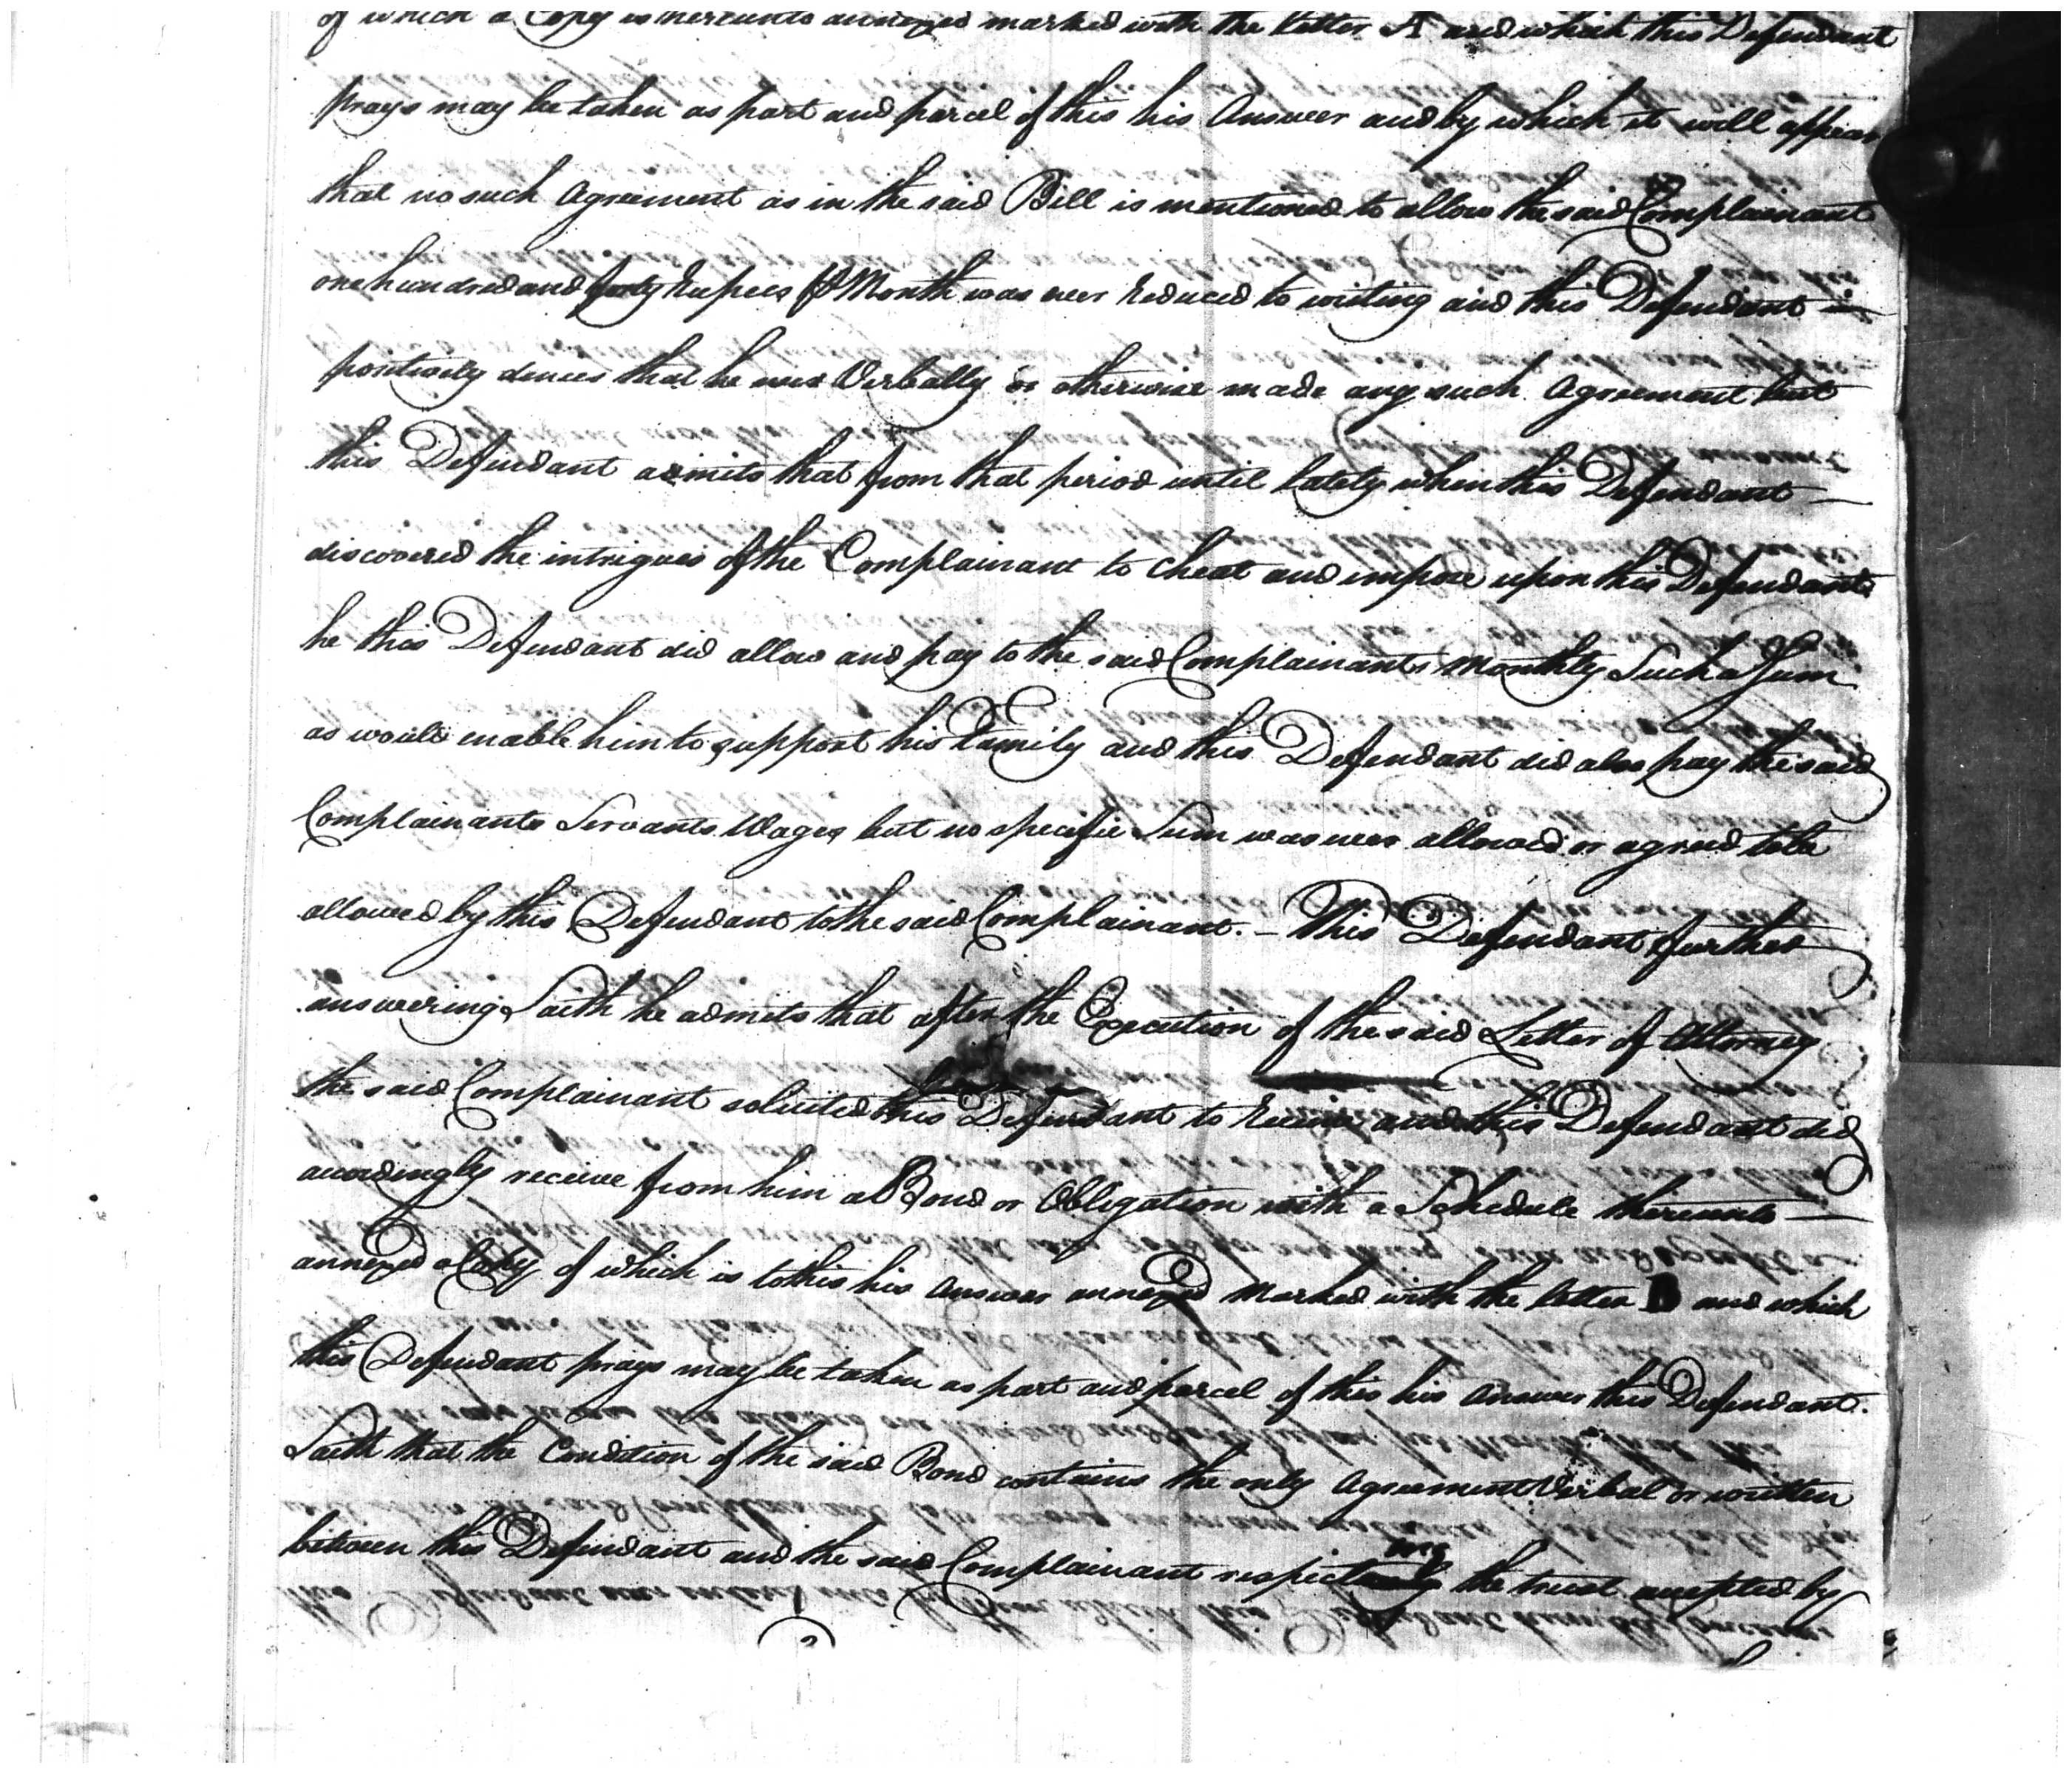 of which a Copy is hereunto annexed marked with the Letter A and which this Defendant
prays may be taken as part and parcel of this his Answer and by which it will appear
that no such Agreement as in the said Bill is mentioned to allow the said Complainant
one hundred and forty Rupees ⅌ Month was ever Reduced to writing and this Defendant
positively denies that he ever Verbally or otherwise made any such Agreement but
this Defendant admits that from that period until Lately when this Defendant
discovered the intrigues of the Complainant to cheat and impose upon this Defendant
he this Defendant did allow and pay to the said Complainants Monthly Such a Sum
as would enable him to support his Family and this Defendant did also pay the said
Complainants Servants Wages but no specific Sum was ever allowed or agreed to be
allowed by this Defendant to the said Complainant. — This Defendant further
answering Saith he admits that after the Execution of the said Letter of Attorney
the said Complainant solicited this Defendant to Receive and this Defendant did
accordingly receive from him a Bond or Obligation with a Schedule thereunto
annexed a Copy of which is to this his Answer annexed Marked with the Letter B and which
this Defendant prays may be taken as part and parcel of this his Answer this Defendant.
Saith that the Condition of the said Bond contains the only Agreement Verbal or written
between this Defendant and the said Complainant respecting the trust accepted by
2